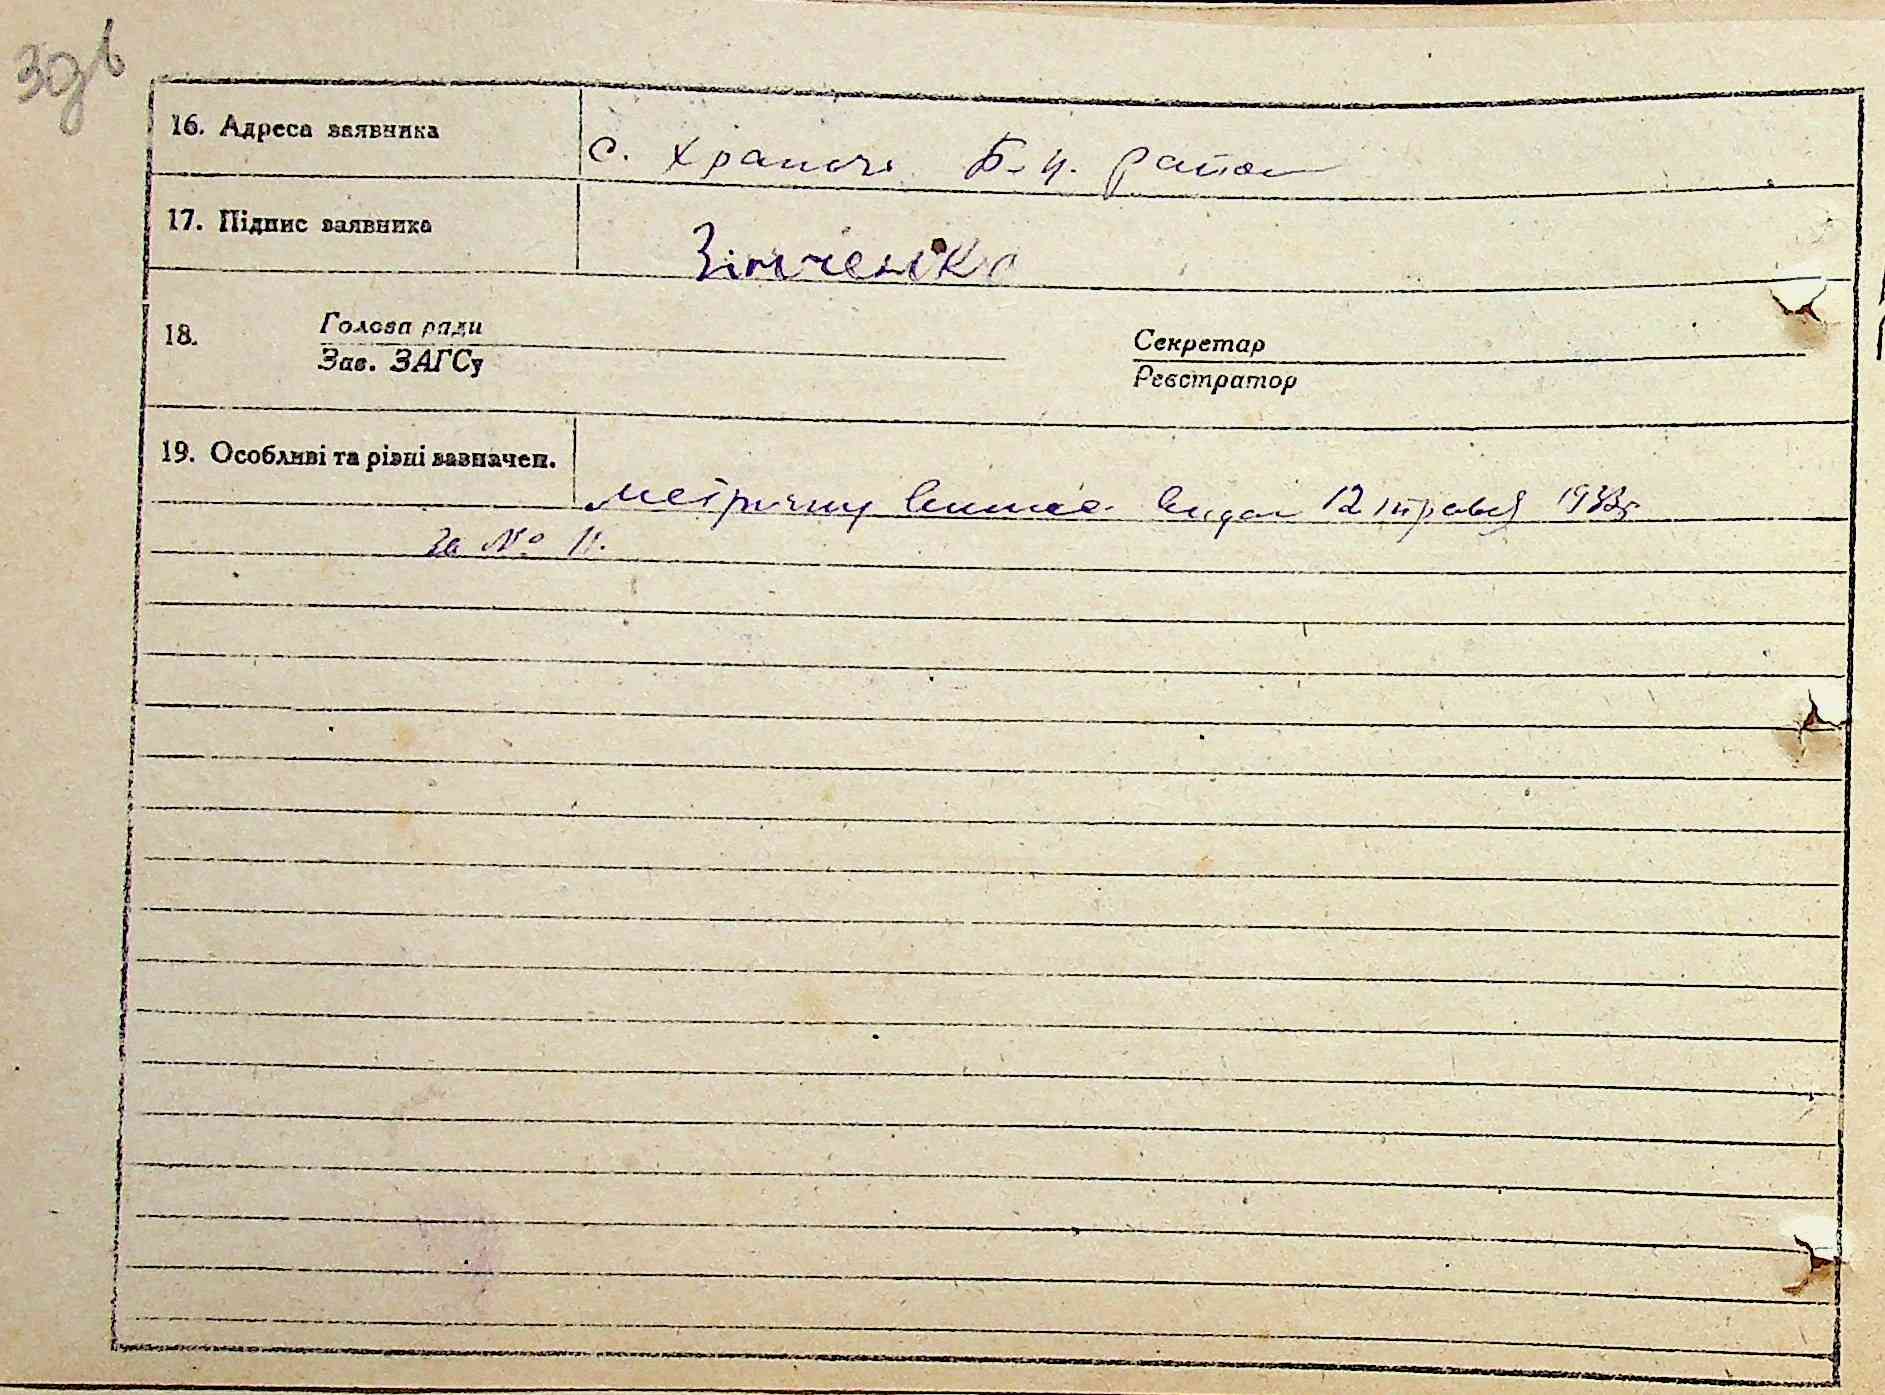 39 в
16. Адреса заявника с. Храпачі Б-Ц. район
17. Підпис заявника Зінченко
18. Голова ради
Зав. ЗАГСу
Секретар
Реєстратор
19. Особливі та різні зазначен.
метричну виписс видан 12 травня 1933г
за № 11.